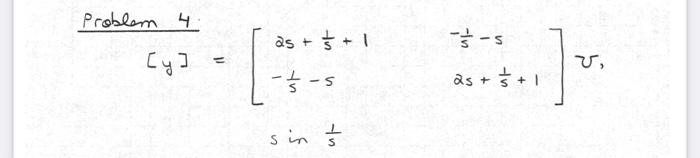 Problem 4.
[y] = [ 2s + 1/s + 1   -1/s - s ] V,
[ -1/s - s   2s + 1/s + 1 ]
s in 1/s